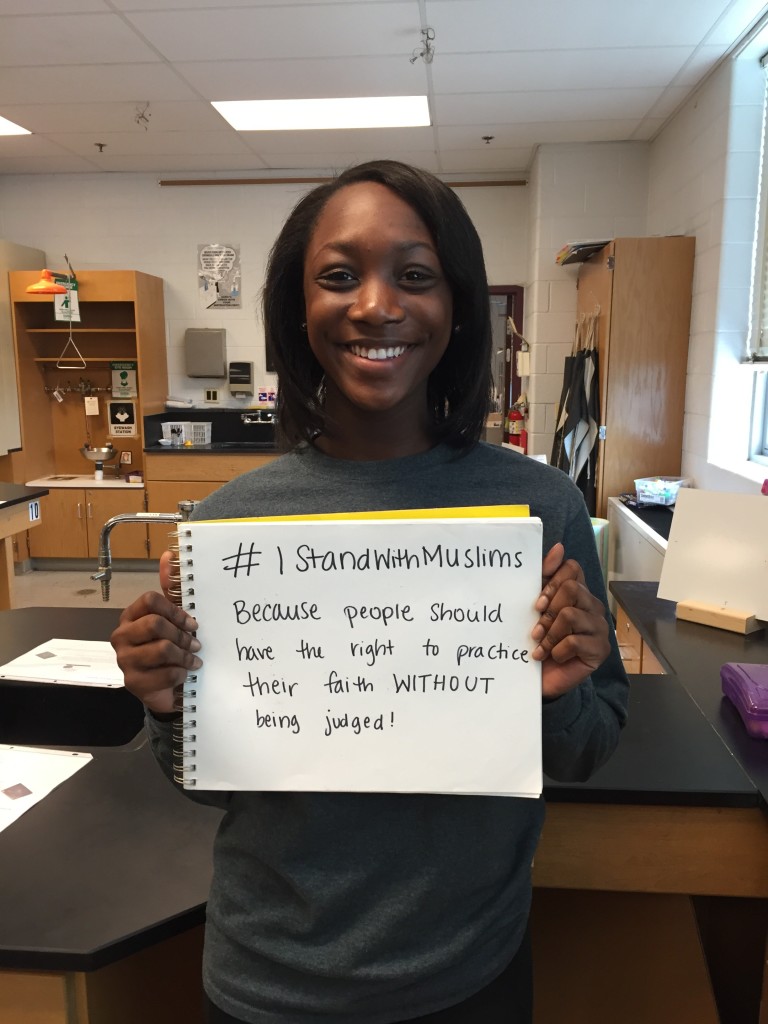 # I StandWithMuslims
Because people should
have the right to practice
their faith WITHOUT
being judged!
10